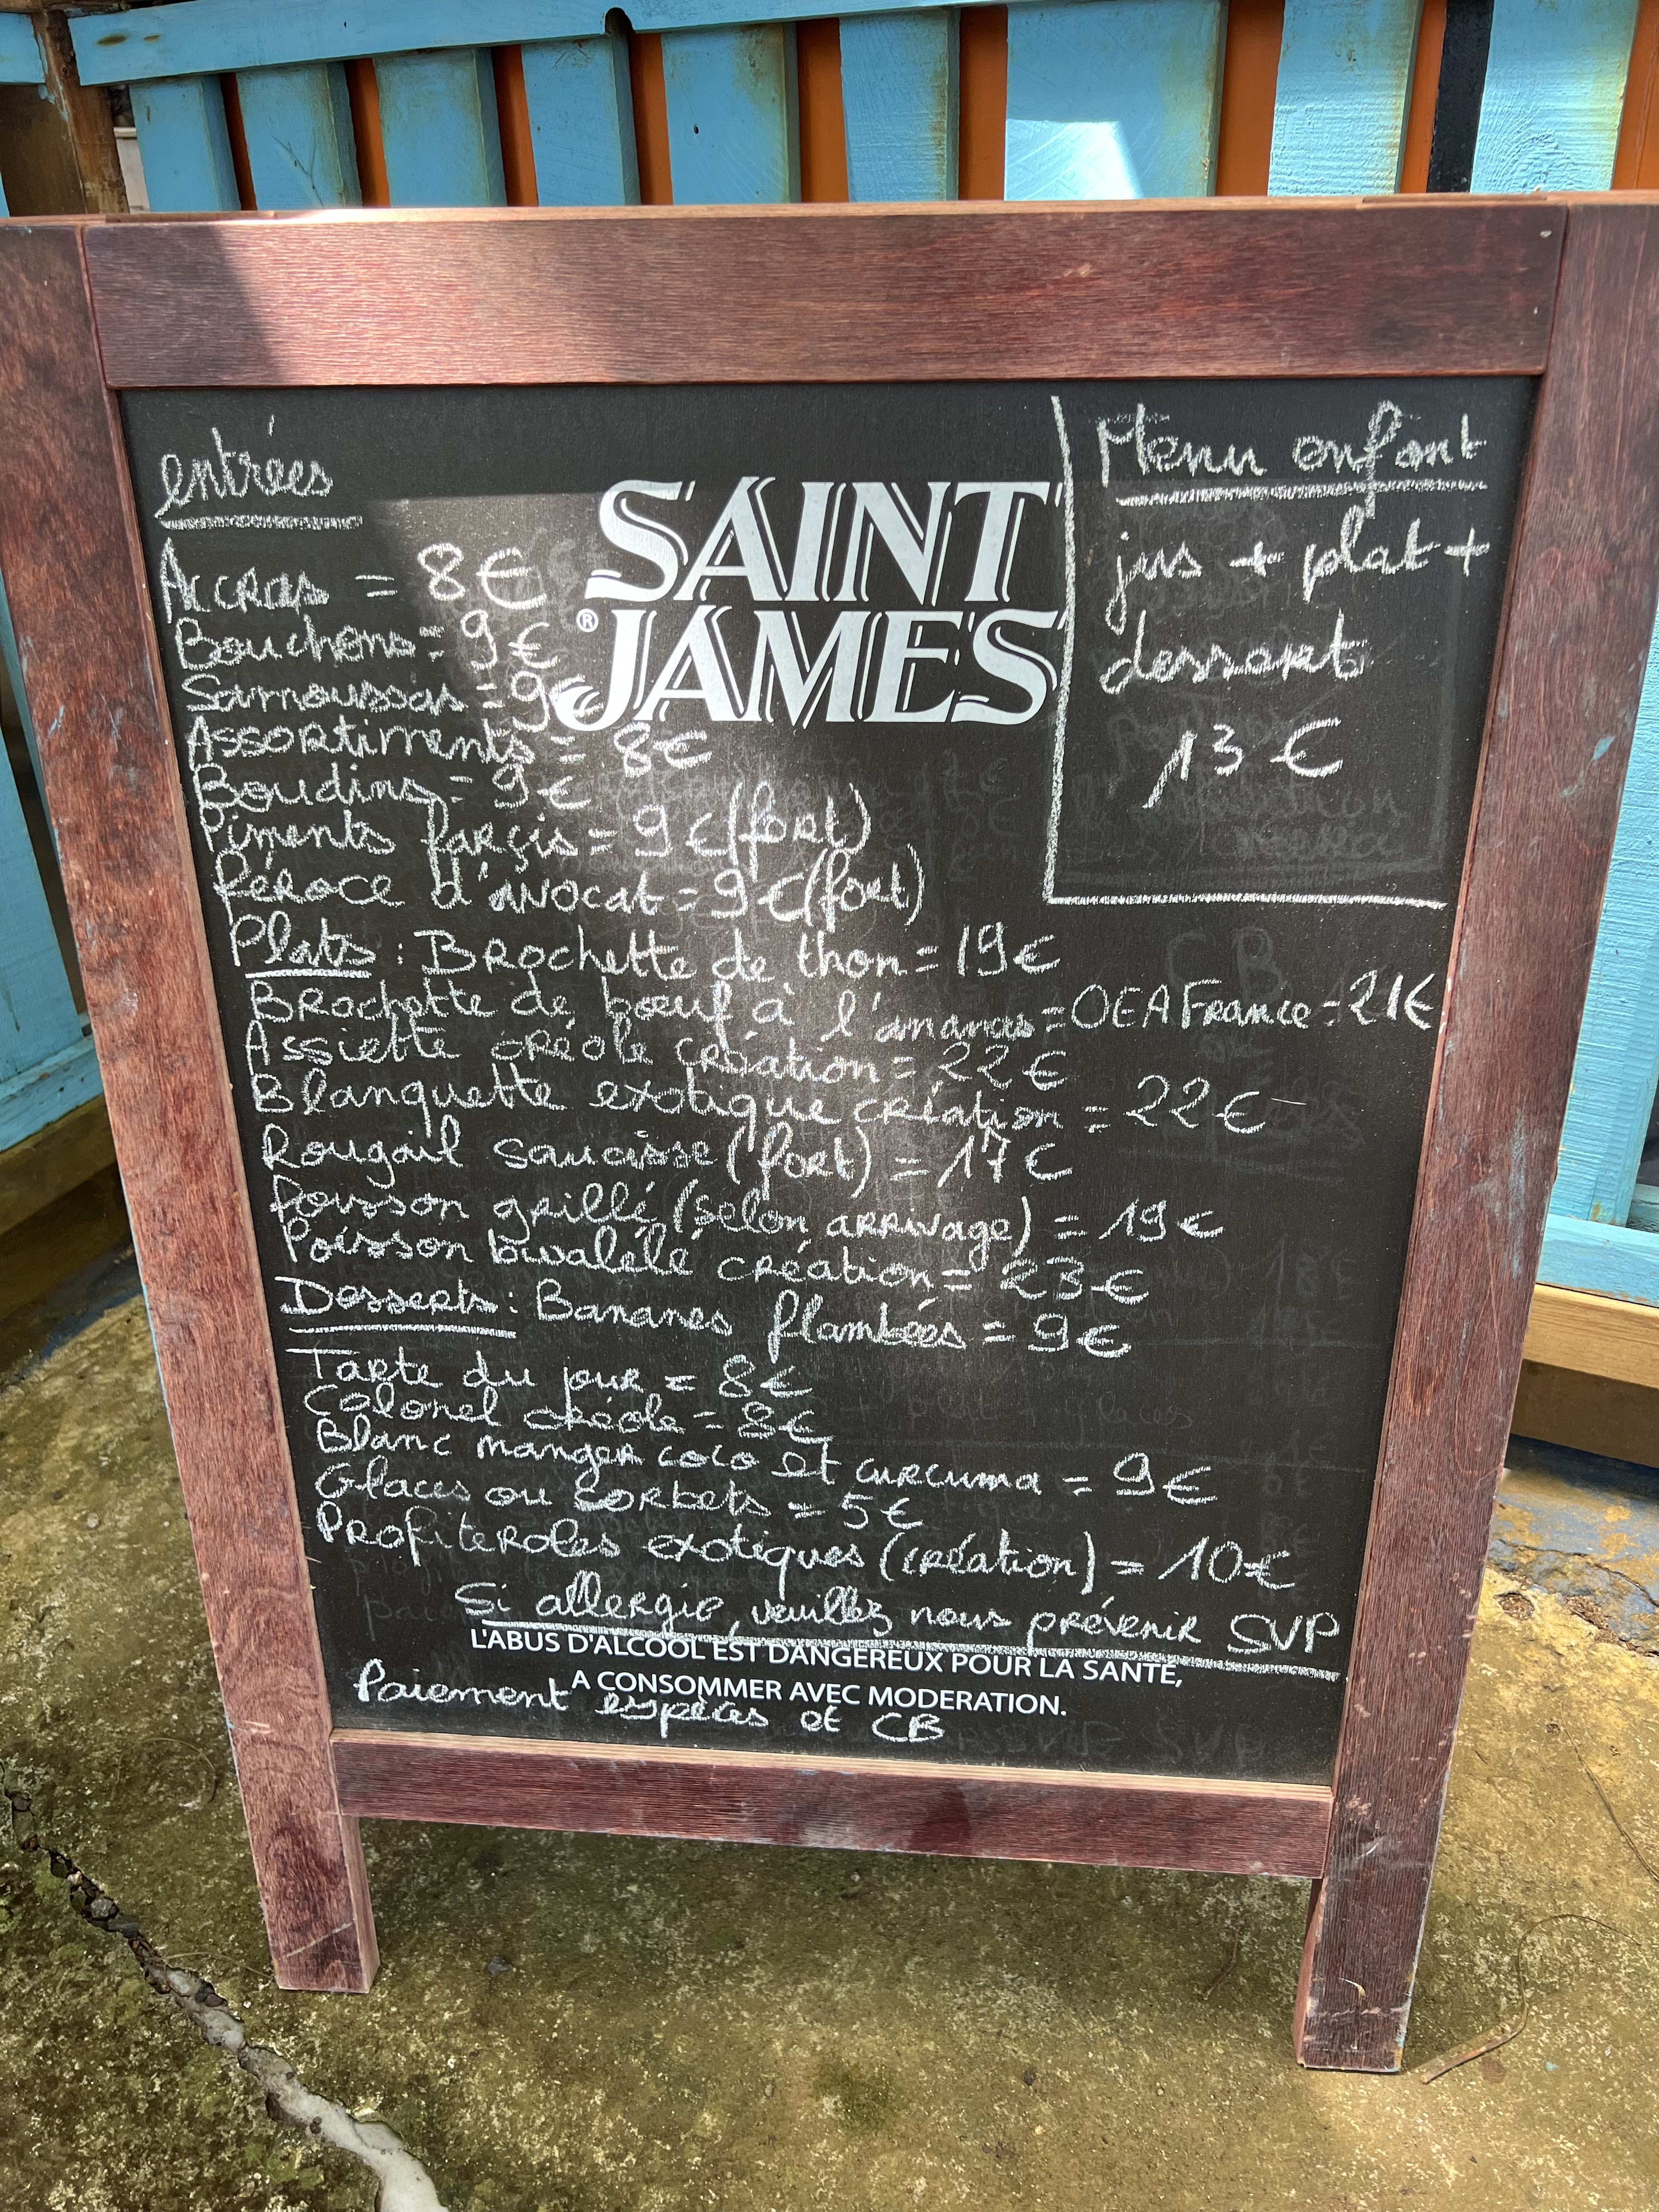 entrées
Accras = 8€
Bouchons = 9€
Samoussas = 9€
Assortiments = 8€
Boudins = 9€
Piments farçis = 9€ (fort)
Féroce d'avocat = 9€ (fort)
SAINT
JAMES
®
Menu enfant
jus + plat +
dessert
13€
Plats : Brochette de thon = 19€
Brochette de bœuf à l'ananas = OEA France = 21€
Assiette créole création = 22€
Blanquette exotique création = 22€
Rougail saucisse (fort) = 17€
Poisson grillé (selon arrivage) = 19€
Poisson bwalélé création = 23€
Desserts : Bananes flambées = 9€
Tarte du jour = 8€
Colonel créole = 8€
Blanc manger coco et curcuma = 9€
Glaces ou sorbets = 5€
Profiteroles exotiques (création) = 10€
Si allergie, veuillez nous prévenir SVP
L'ABUS D'ALCOOL EST DANGEREUX POUR LA SANTÉ,
A CONSOMMER AVEC MODERATION.
Paiement espèces et CB